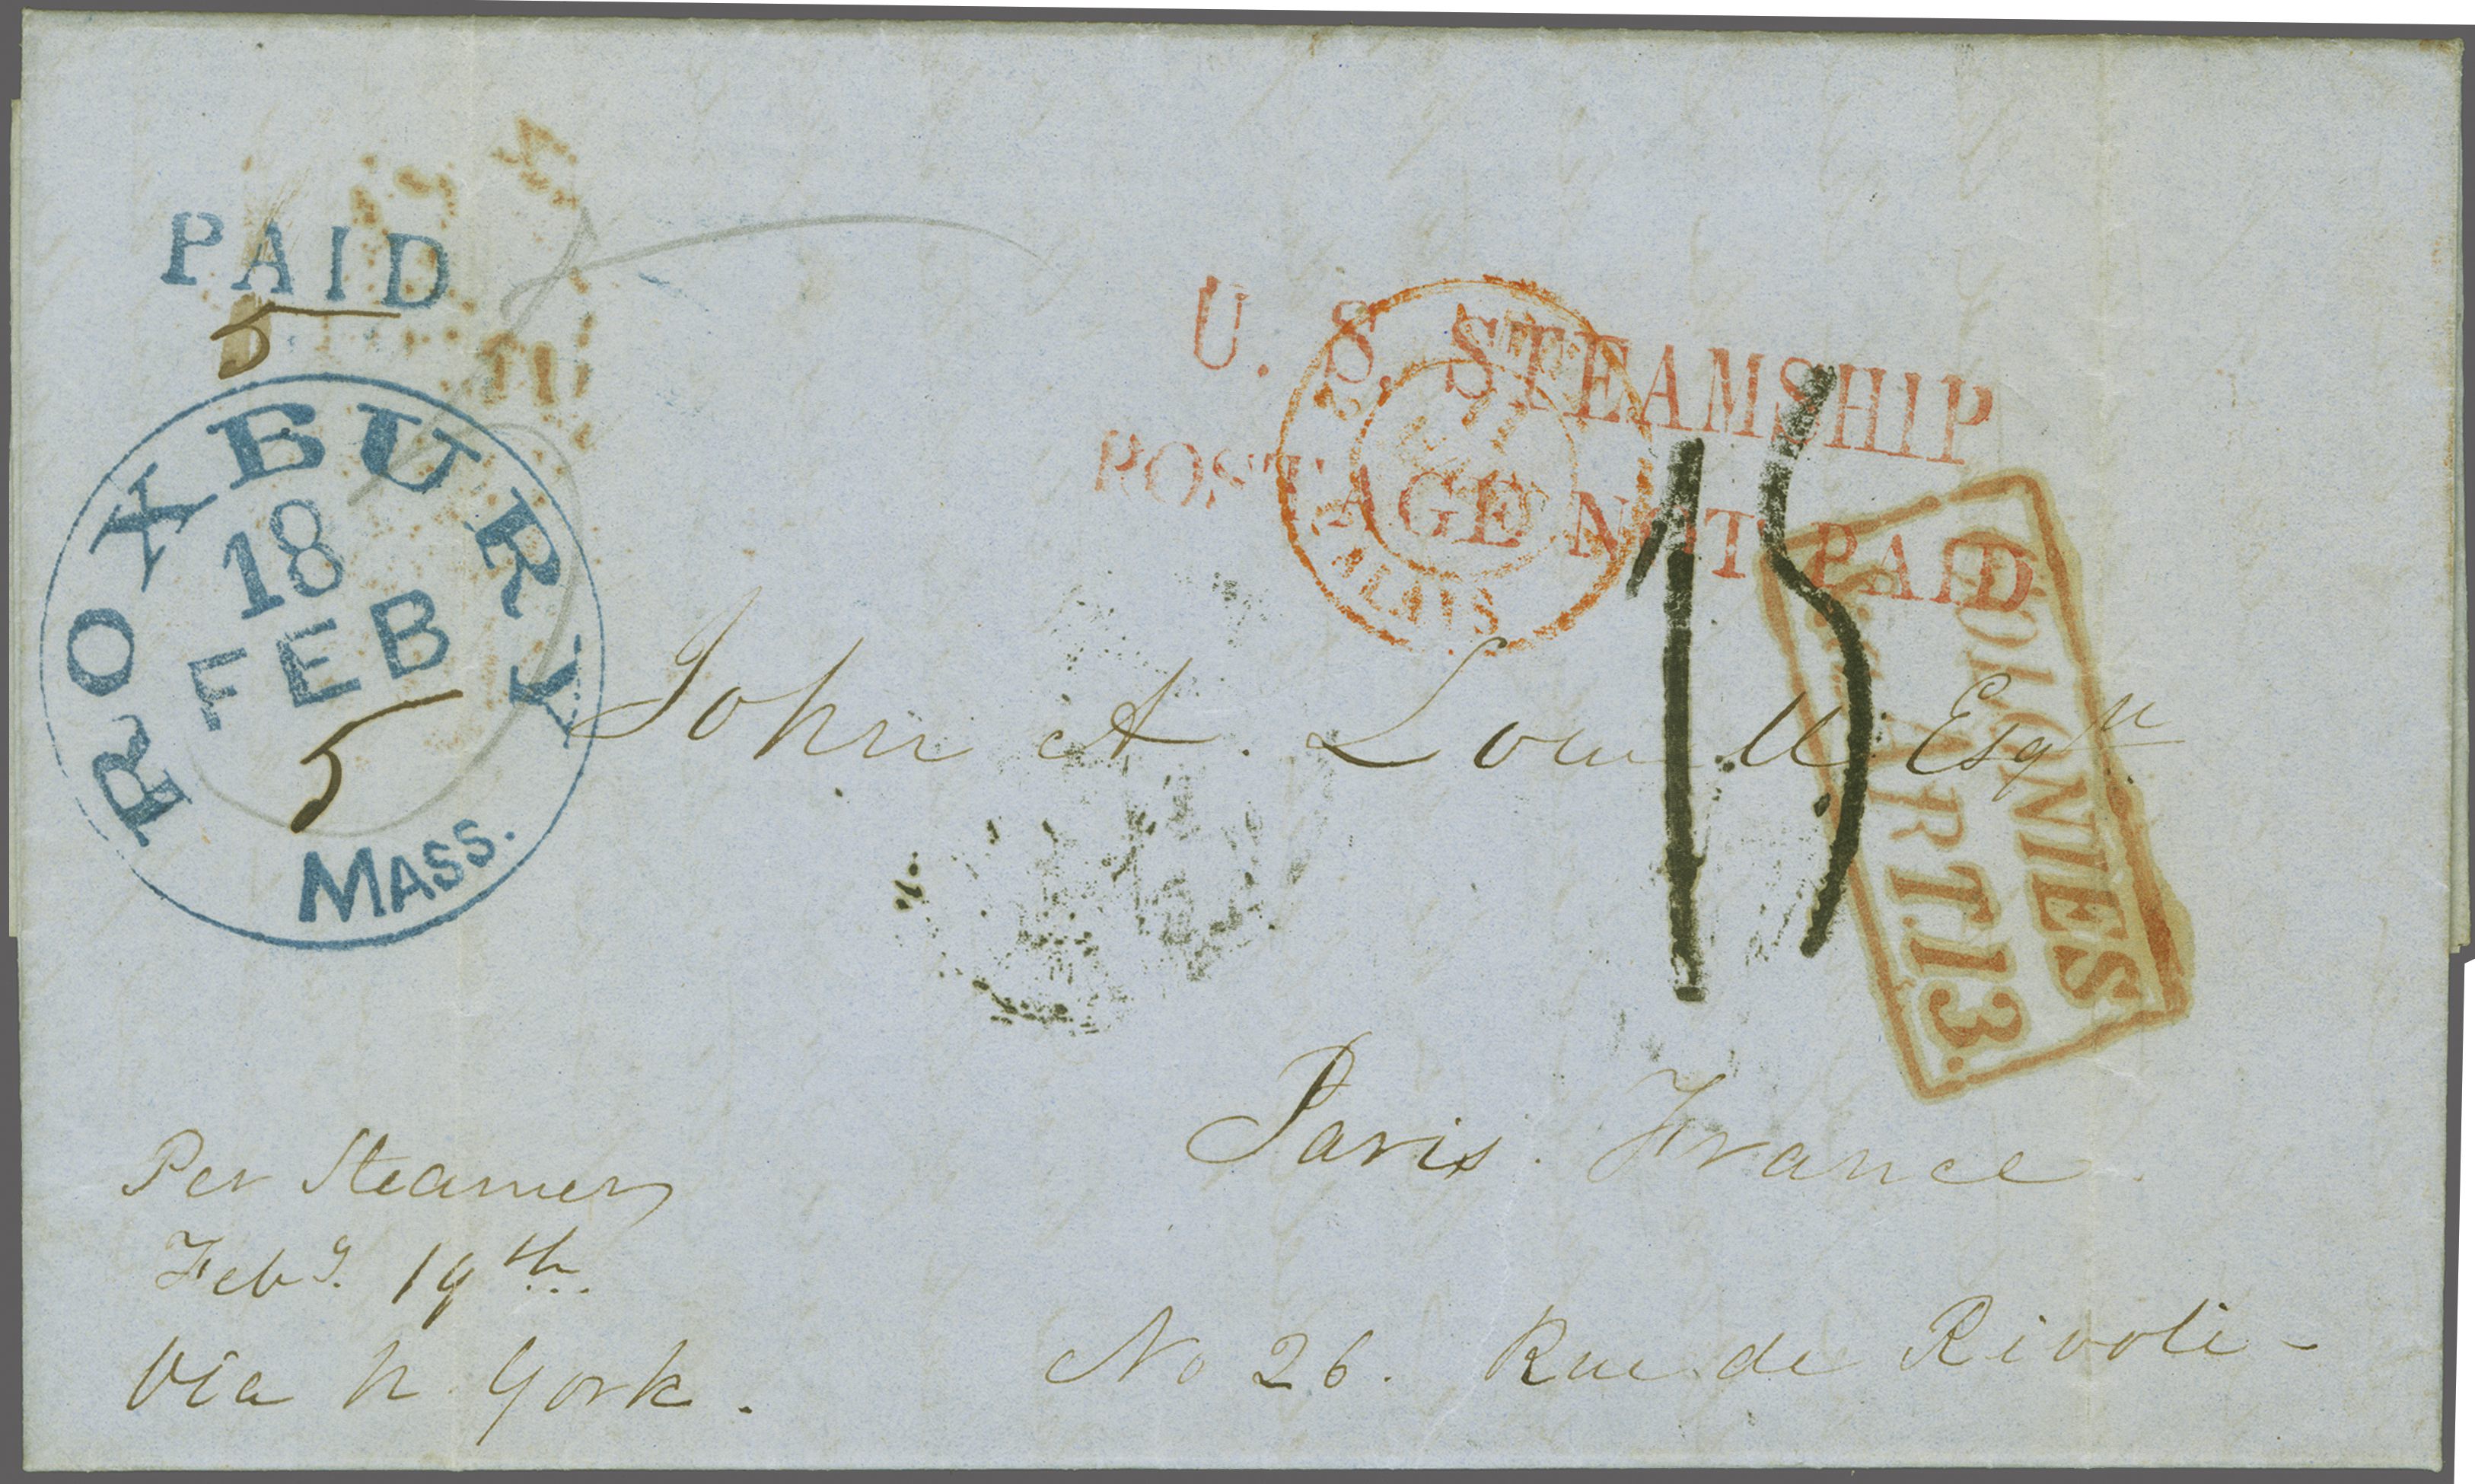 PAID
5
ROXBURY
18
FEB
5
MASS.
U. S. STEAMSHIP
POSTAGE NOT PAID
CALAIS
15
COLONIES
ART.13.
John A. Lowell Esqre
Paris. France.
No 26. Rue de Rivoli-
Per Steamer
Feby. 19th.
Via N. York.